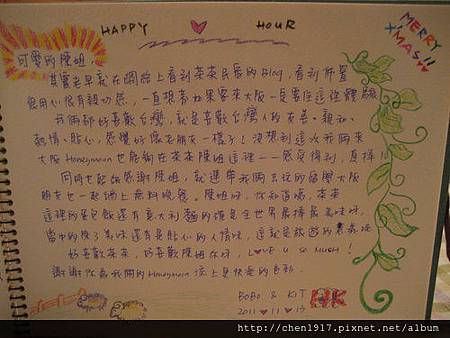 HAPPY ♥ HOUR
MERRY X'MAS!!
可愛的陳姐,
其實老早就在網路上看到奈奈民宿的Blog,看到佈置
很用心很有親切感,一直想著如果要來大阪一定要住這裡體驗
我倆都好喜歡台灣,就是喜歡台灣人的友善、親和、
熱情、貼心,感覺好像老朋友一樣子!沒想到這次我倆來
大阪Honeymoon也能夠在奈奈陳姐這裡——感受得到,真棒!!
同時也超感謝陳姐,就連帶我倆去玩的留學大阪
朋友也一起湊上無料晚餐。陳姐呀,你知道嗎,奈奈
這裡的蛋包飯還有意大利麵的確是全世界最棒最美味呀,
當中的除了美味還有是貼心的人情味,這就是旅遊的意義呢
好喜歡奈奈,好喜歡陳姐你呀,LOVE U SO MUCH!
謝謝你為我倆的Honeymoon添上更快樂的色彩.
BOBO & KIT HK
2011♥11♥13
http://chen1917.pixnet.net/album